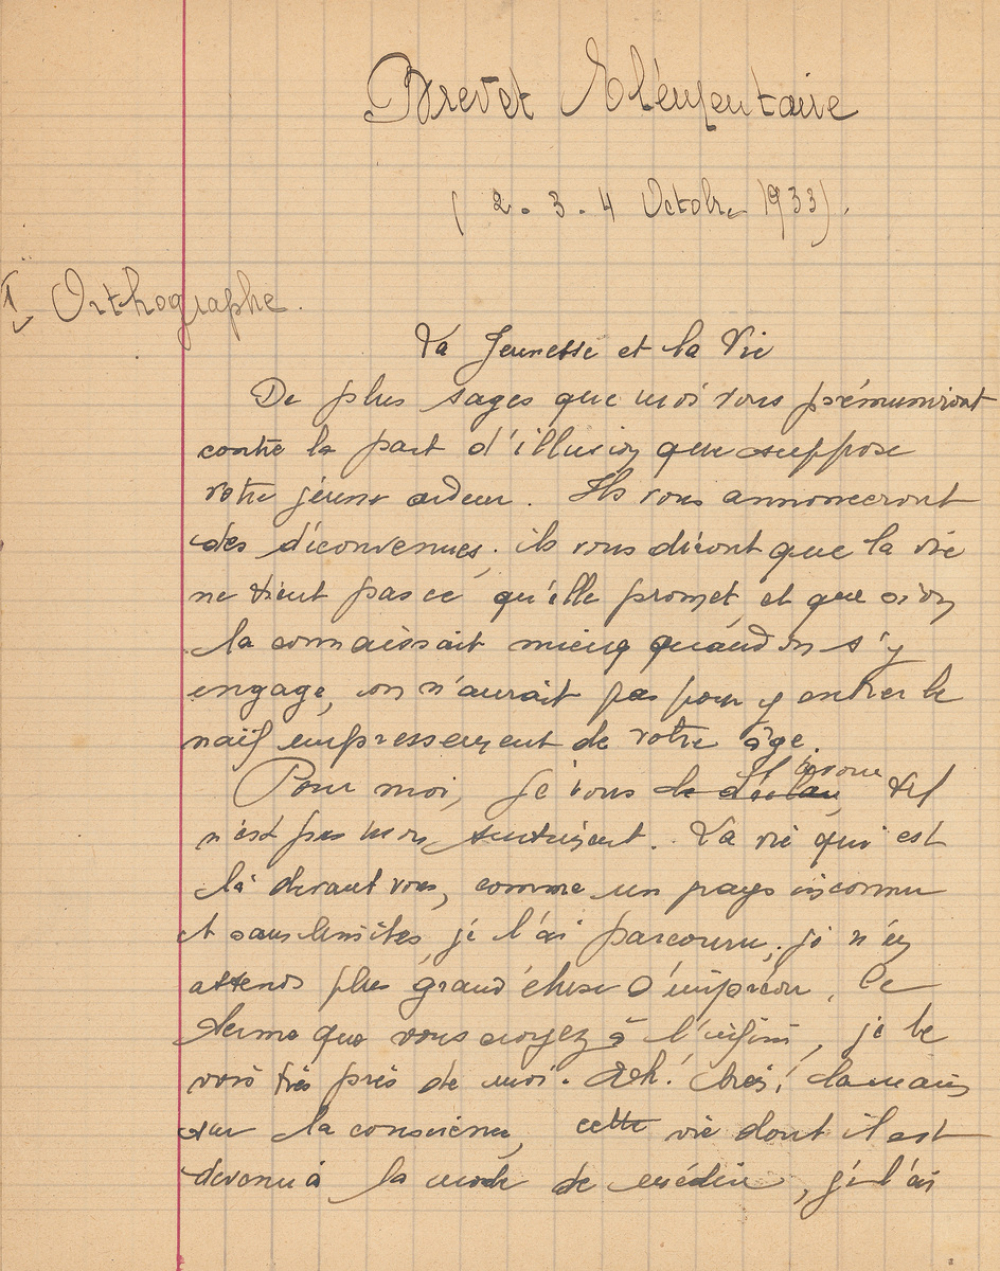 Brevet Elémentaire
( 2. 3. 4 Octobre 1933).
I Orthographe.
La Jeunesse et la Vie
De plus sages que moi vous prémuniront
contre la part d'illusion que suppose
votre jeune ardeur. Ils vous annonceront
des déconvenues; ils vous diront que la vie
ne tient pas ce qu'elle promet, et que si on
la connaissait mieux quand on s'y
engage, on n'aurait pas pour y entrer le
naïf empressement de votre âge.
Pour moi, je vous le déclare, tel
l'avoue
n'est pas mon sentiment. La vie qui est
là devant vous, comme un pays inconnu
et sans limites, je l'ai parcouru; je n'en
attends plus grand'chose d'imprévu. Ce
terme que vous croyez à l'infini, je le
vois très près de moi. Eh! bien! la main
sur la conscience, cette vie dont il est
devenu à la mode de médire, je l'ai